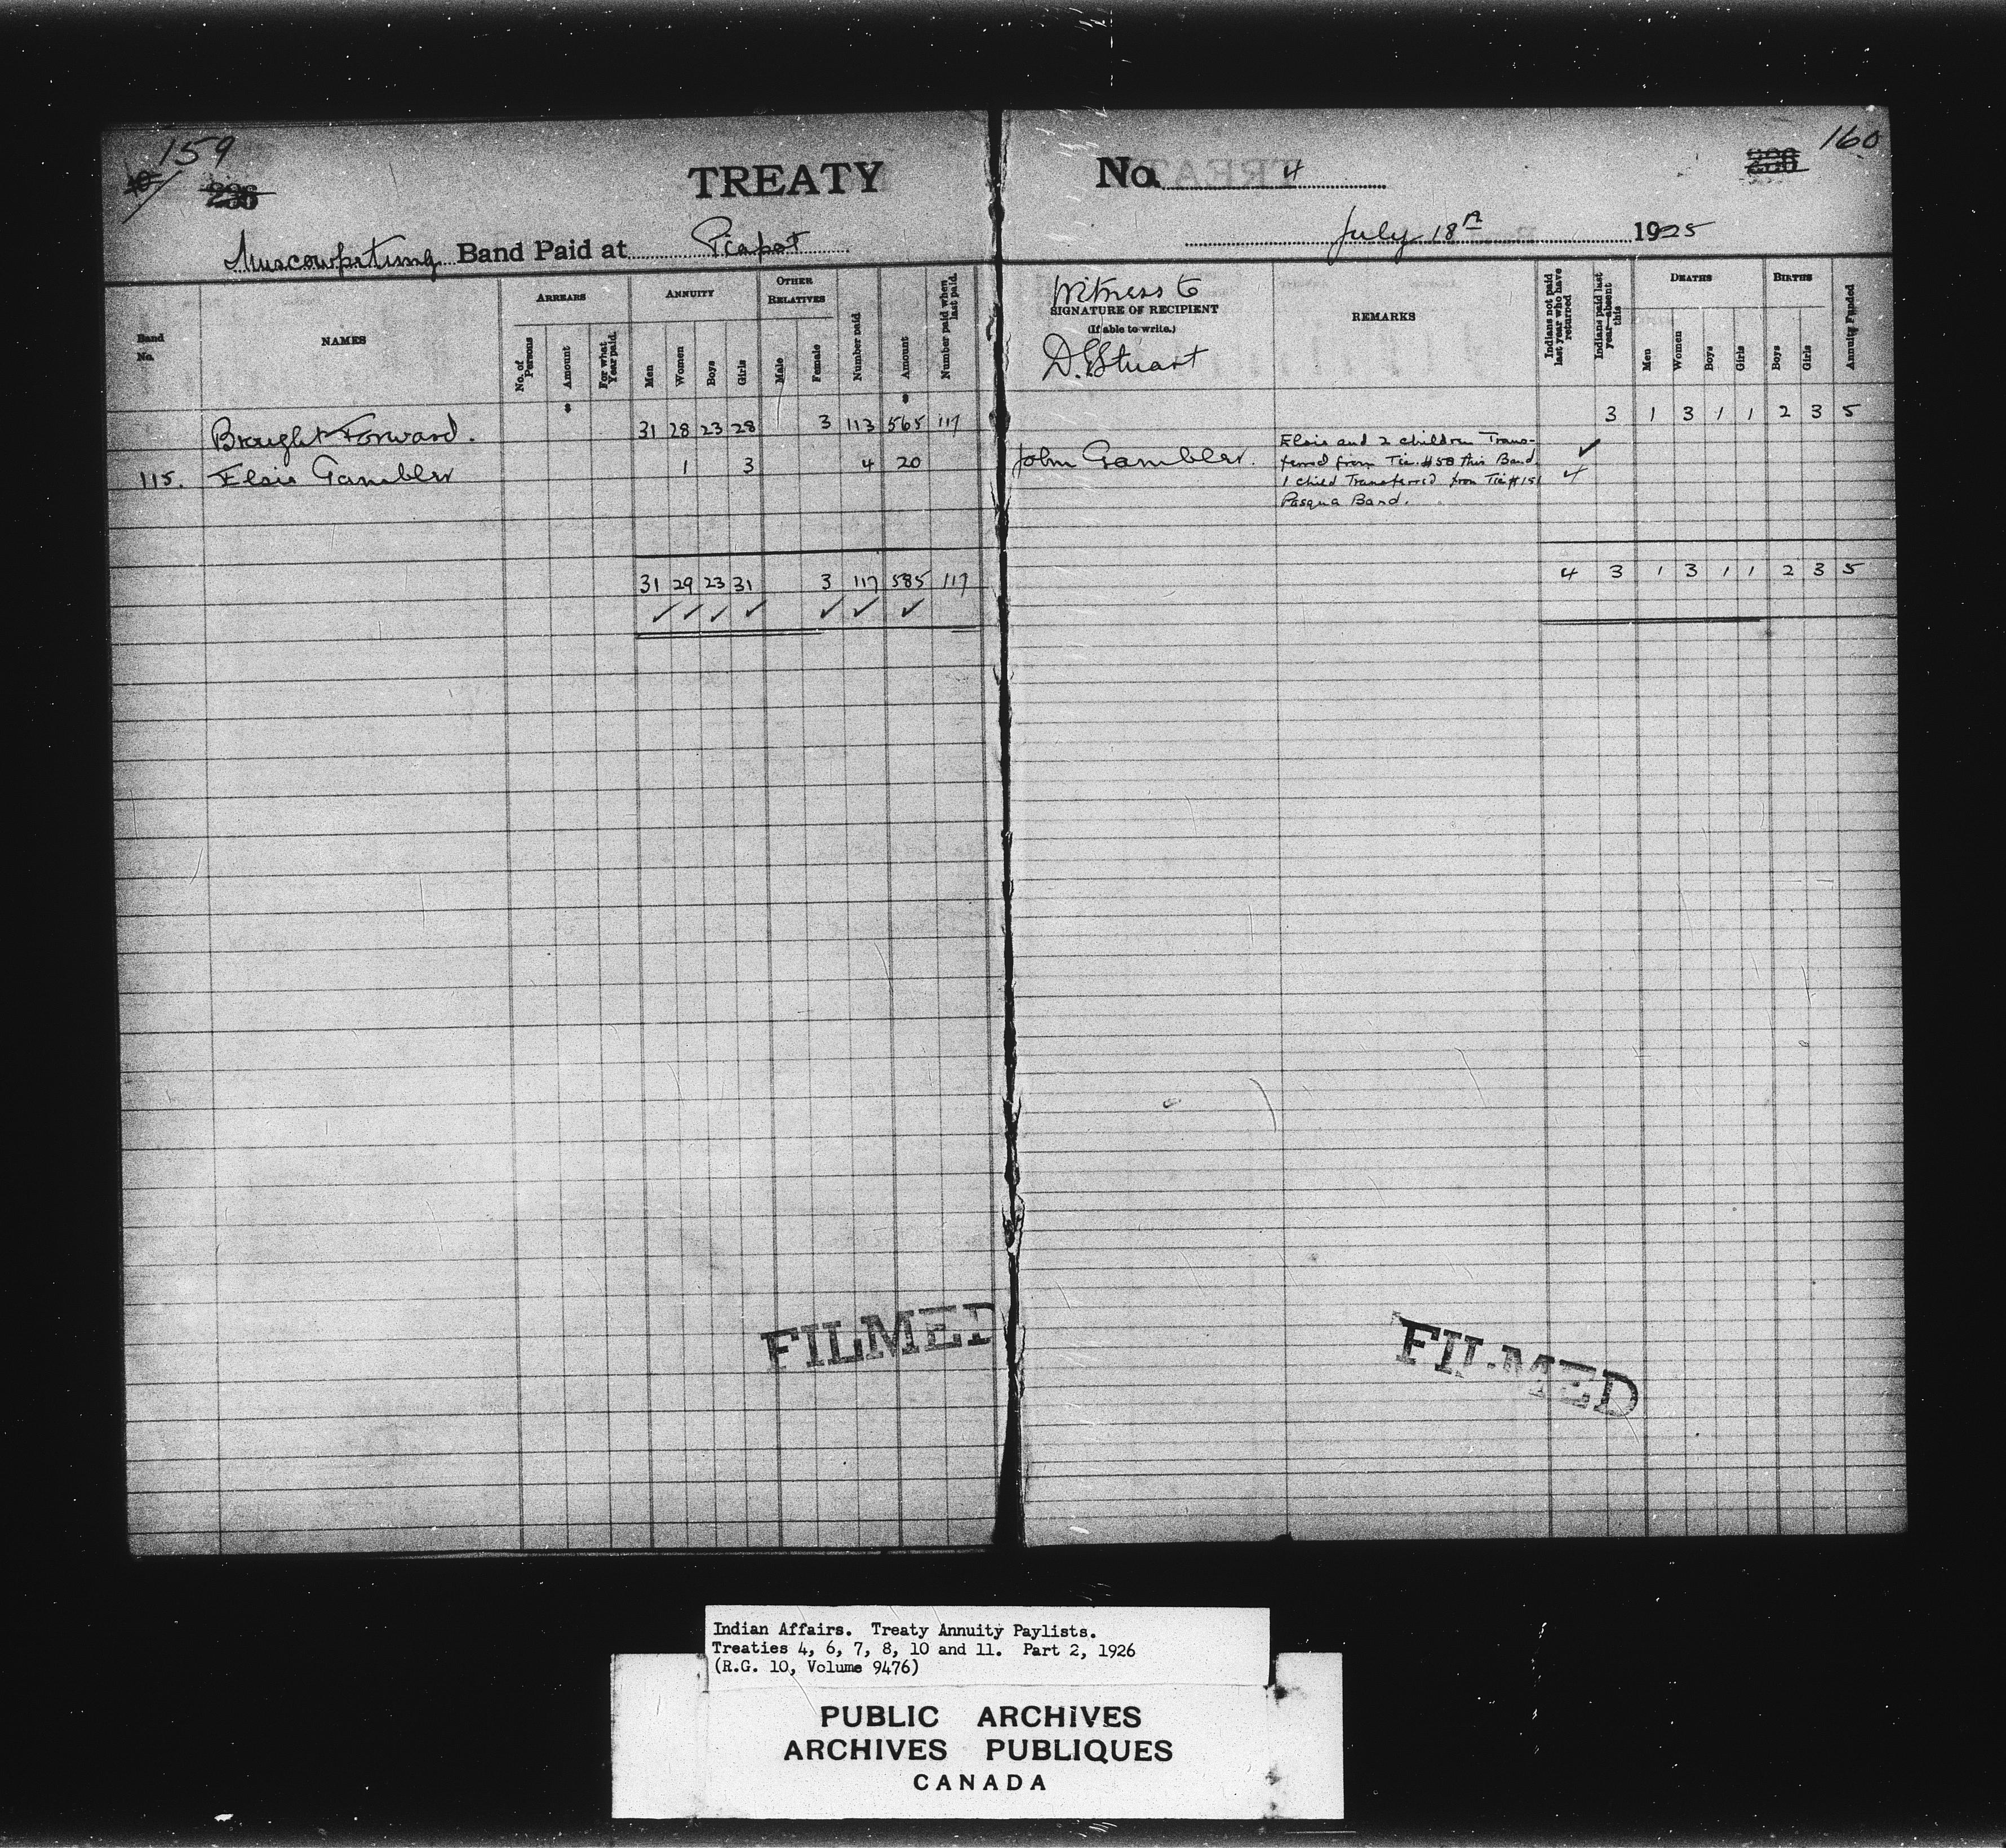 159
160
TREATY No. 4
Muscowpetung Band Paid at Piapot
July 18th 1925
Band No.
NAMES
ARREARS
No. of Persons
Amount
For what Year paid.
ANNUITY
Men
Women
Boys
Girls
OTHER RELATIVES
Male
Female
Number paid
Amount
Number paid when last paid.
Witness to
SIGNATURE OF RECIPIENT
(If able to write.)
D. Stuart
REMARKS
Indians not paid last year who have returned
Indians paid last year—absent this
DEATHS
Men
Women
Boys
Girls
BIRTHS
Boys
Girls
Annuity Funded
$ $
Brought Forward. 31 28 23 28 3 113 565 117 3 1 3 1 1 2 3 5
115. Elsie Gambler 1 3 4 20 John Gambler. ✓ 4
Elsie and 2 children Trans-
ferred from Tic. #58 this Band.
1 child Transferred from Tic # 151
Pasqua Band.
31 29 23 31 3 117 585 117 4 3 1 3 1 1 2 3 5
✓ ✓ ✓ ✓ ✓ ✓ ✓
FILMED
FILMED
Indian Affairs. Treaty Annuity Paylists.
Treaties 4, 6, 7, 8, 10 and 11. Part 2, 1926
(R.G. 10, Volume 9476)
PUBLIC ARCHIVES
ARCHIVES PUBLIQUES
CANADA